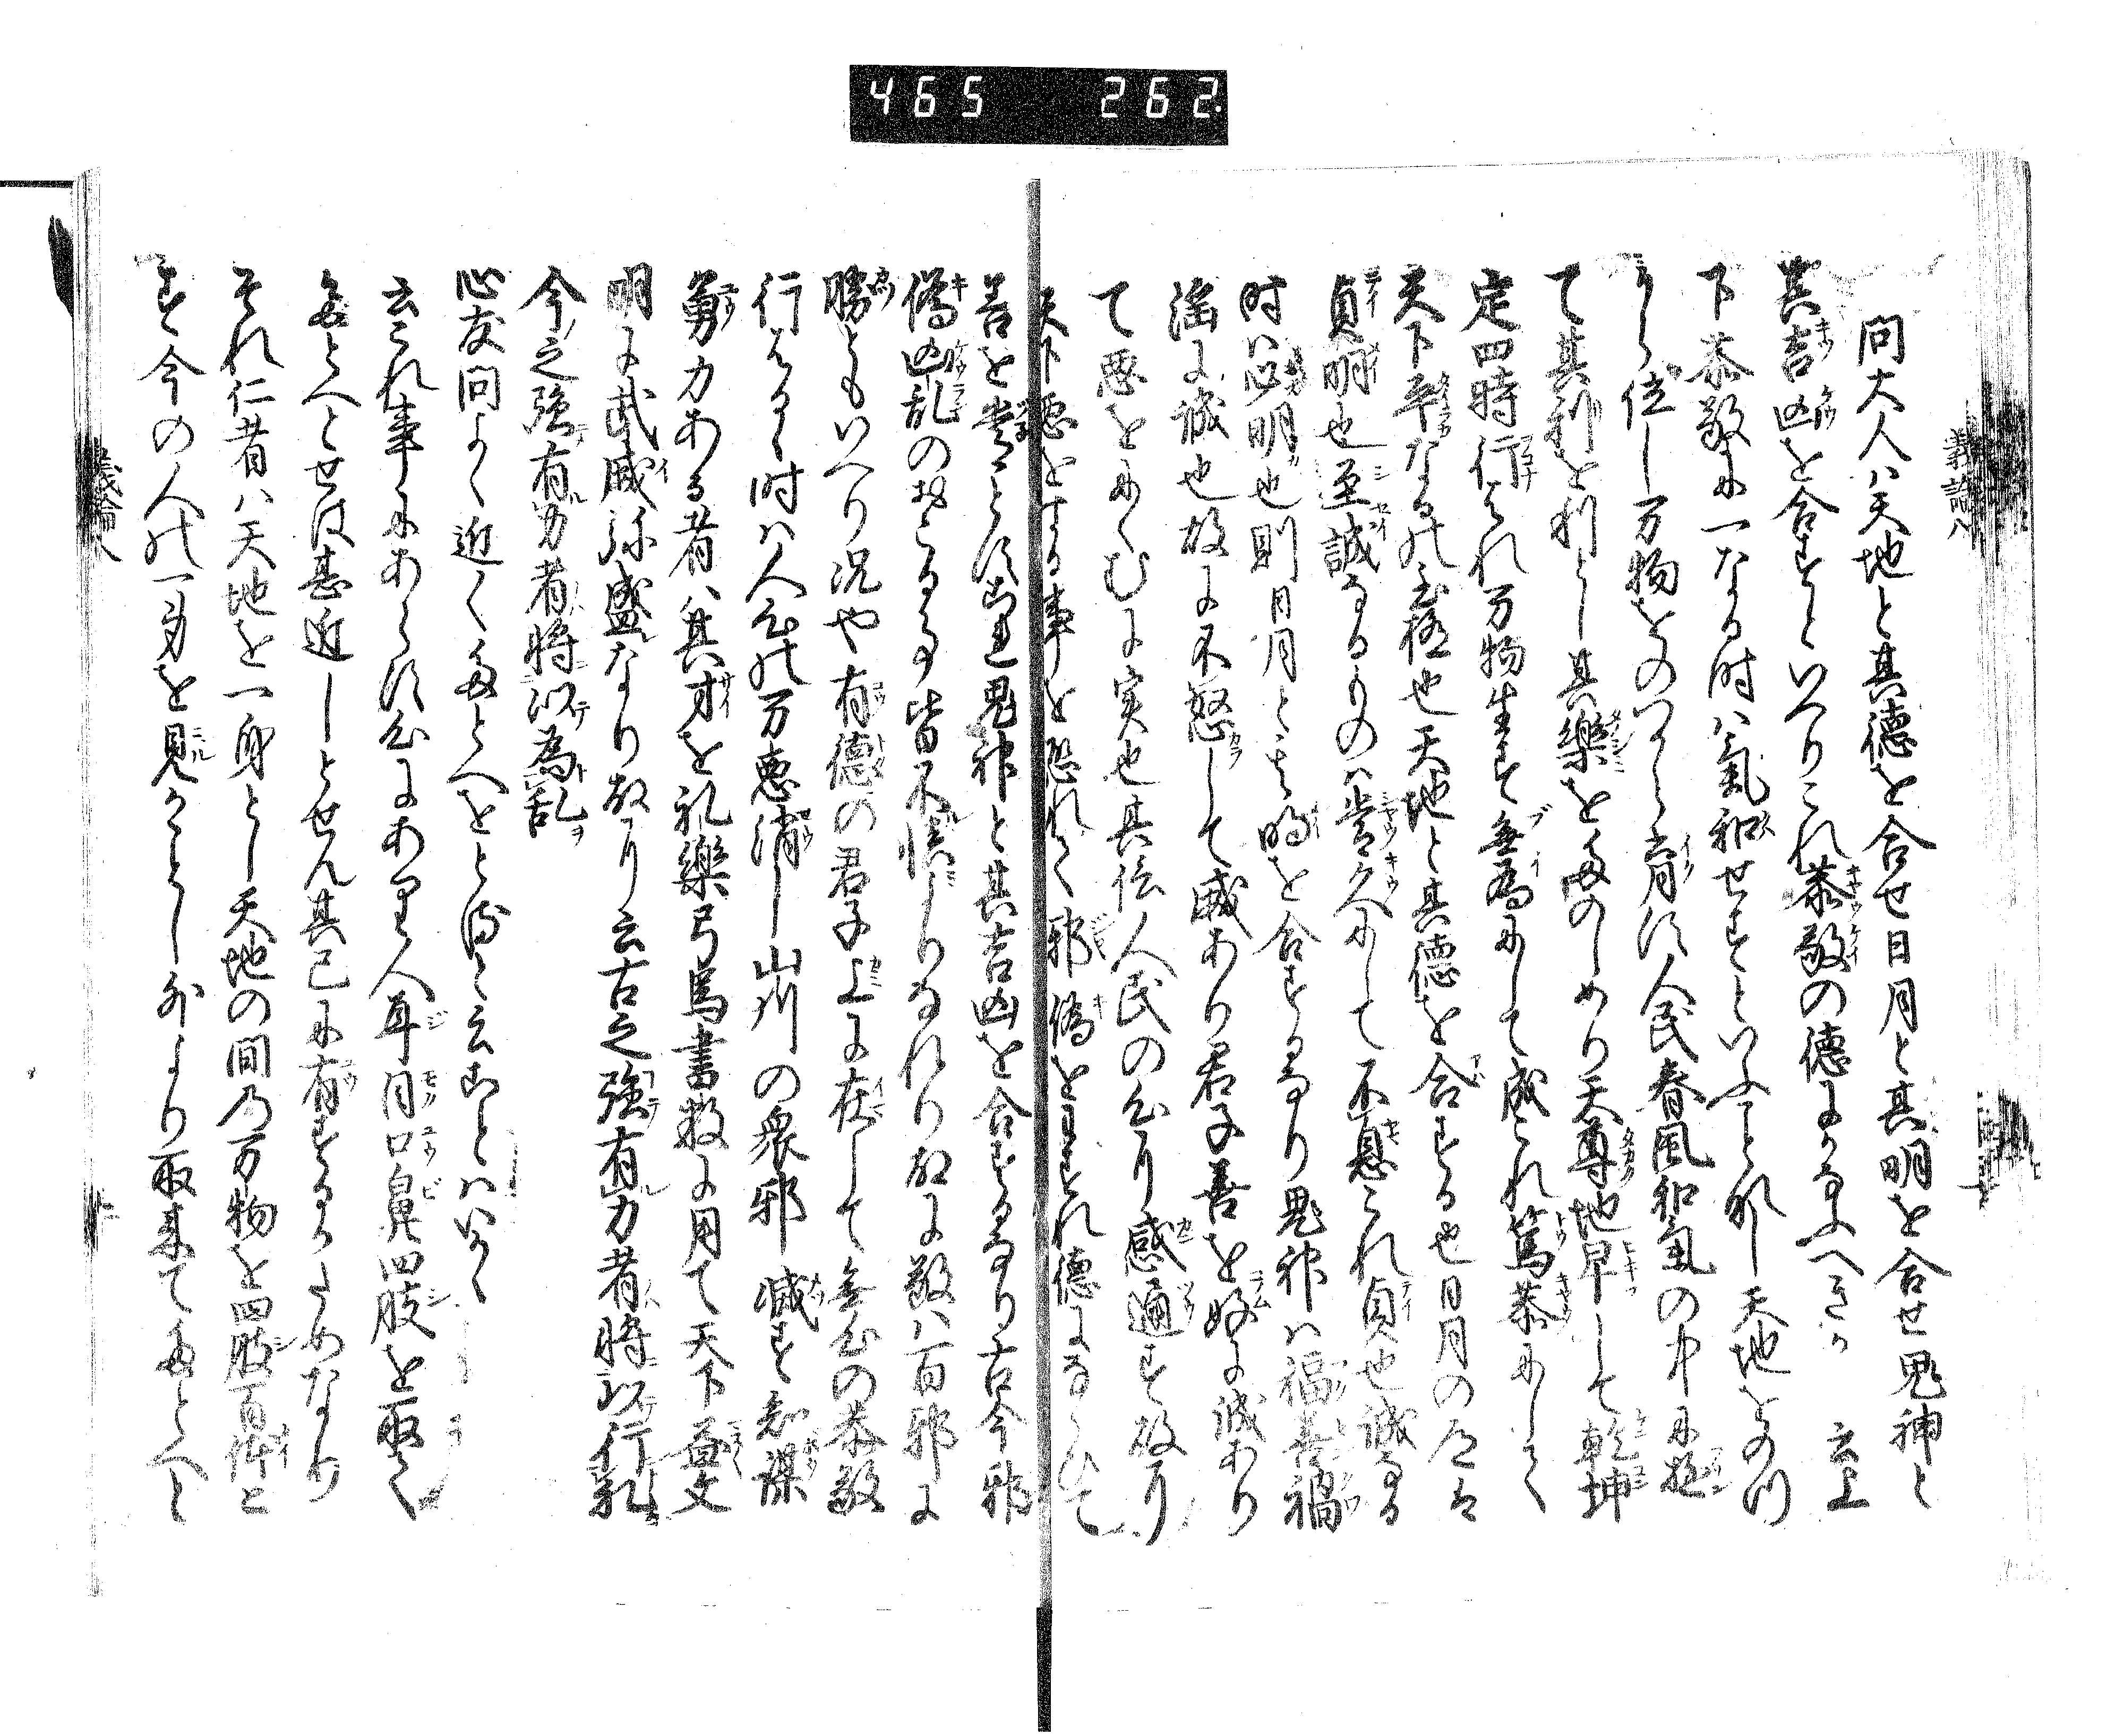 465 262
義論八
問大人ハ天地と其徳を合せ日月と其明を合せ鬼神と
其吉凶を合すといへりこれ恭敬の徳にかなふへきか 云上
下恭敬に一なる時ハ氣和せすといふ事なし天地をのつ
から位し万物をのつから育す人民春風和氣の中に遊
て其利を利とし其樂をたのしめり天尊地卑して乾坤
定四時行はれ万物生す無為にして成これ篤恭にして
天下平なるの至極也天地と其徳を合する也日月の道は
貞明也至誠なるものハ悠久にして不息これ貞也誠なる
时ハ必明也則日月と其明を合するなり鬼神ハ福善禍
淫に誠也故に不怒して威あり君子善を好に誠あり
て悪をにくむに実也其位人民の心に感通す故に
天下悪をする事を恐れて邪偽をわすれ徳にならひて
善を楽とす是鬼神と其吉凶を合するなり古今邪
偽凶乱のおこる事皆不慎よりなれり故に敬ハ百邪に
勝ともいへり况や有徳の君子上に在して無我の恭敬
行はるゝ时ハ人心の万悪消し山川の衆邪滅す知謀
勇力ある者ハ其才を礼樂弓馬書数に用て天下益文
明に武威弥盛なり故に云古之強有力者将以行礼
今之強有力者将以為乱
心友問よく近くたとへをとるを云ことハいかゝ
云これ事にあらす心にあり人耳目口鼻四肢を取て
たとへとせは甚近しとせん其己に有するかためなり
それ仁者ハ天地を一身とし天地の間乃万物を四肢百体と
す今の人の一身を見かことし外より取来てたとへと
義論八